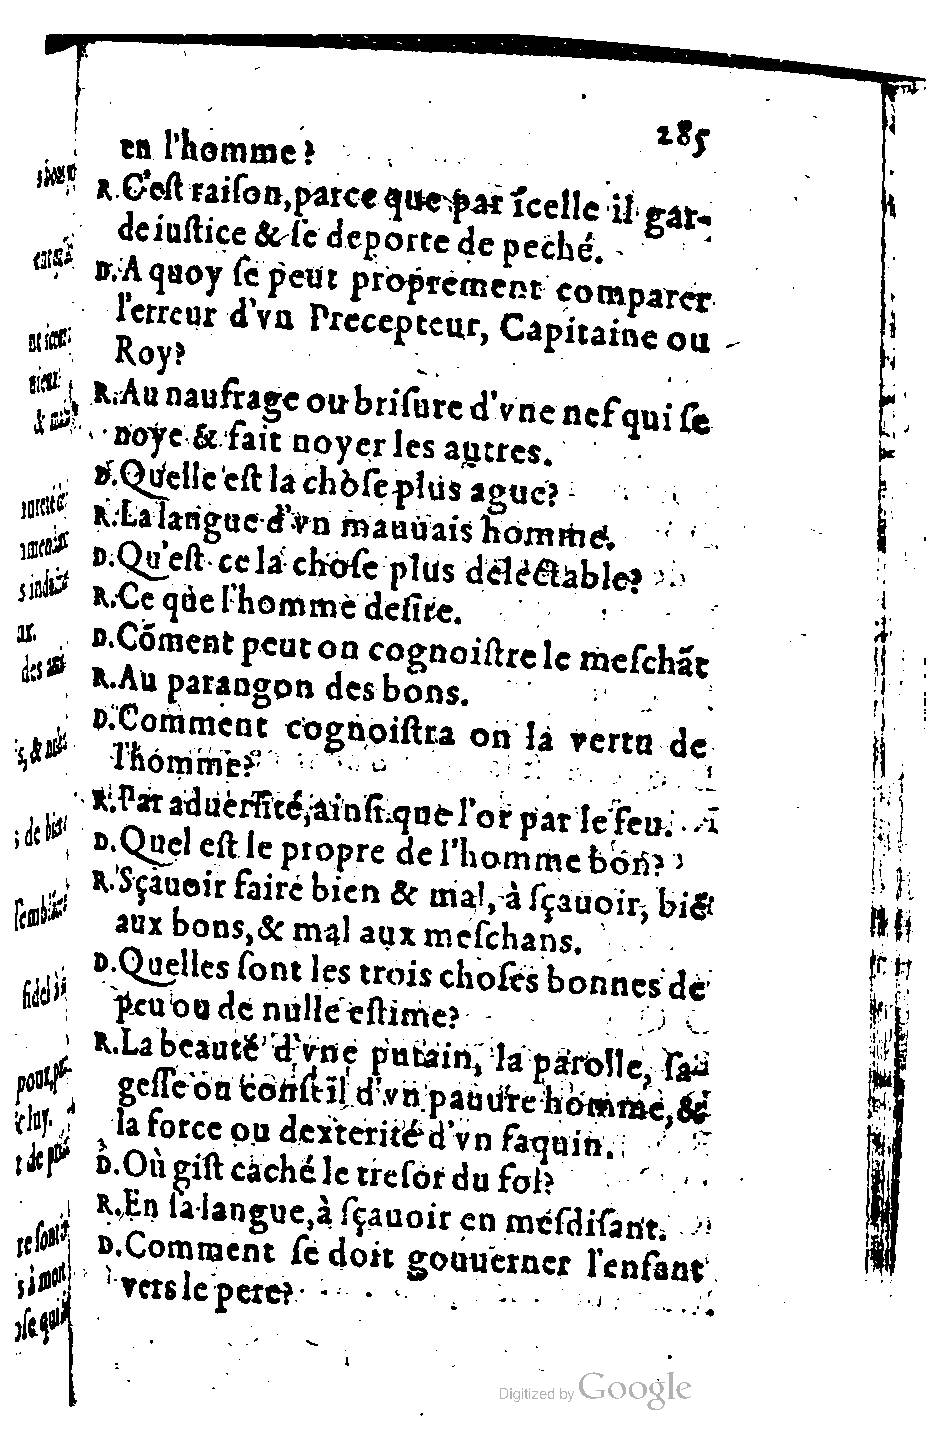 285
en l'homme?
R.C'eſt raiſon,parce que par icelle il gar-
de iuſtice & ſe deporte de peché.
D.A quoy ſe peut proprement comparer
l'erreur d'vn Precepteur, Capitaine ou
Roy?
R.Au naufrage ou briſure d'vne nef qui ſe
noye & fait noyer les autres.
D.Quelle eſt la choſe plus ague?
R.La langue d'vn mauuais homme.
D.Qu'eſt ce la choſe plus delectable?
R.Ce que l'homme deſire.
D.Cōment peut on cognoiſtre le meſchāt
R.Au parangon des bons.
D.Comment cognoiſtra on la vertu de
l'homme?
R.Par aduerſité,ainſi que l'or par le feu.
D.Quel eſt le propre de l'homme bon?
R.Sçauoir faire bien & mal, à ſçauoir, biē
aux bons,& mal aux meſchans.
D.Quelles ſont les trois choſes bonnes de
peu ou de nulle eſtime?
R.La beauté d'vne putain, la parolle, ſa-
geſſe ou conſeil d'vn pauure homme,&
la force ou dexterité d'vn faquin.
D.Où giſt caché le treſor du fol?
R.En ſa langue,à ſçauoir en meſdiſant.
D.Comment ſe doit gouuerner l'enfant
vers le pere?
Digitized by Google